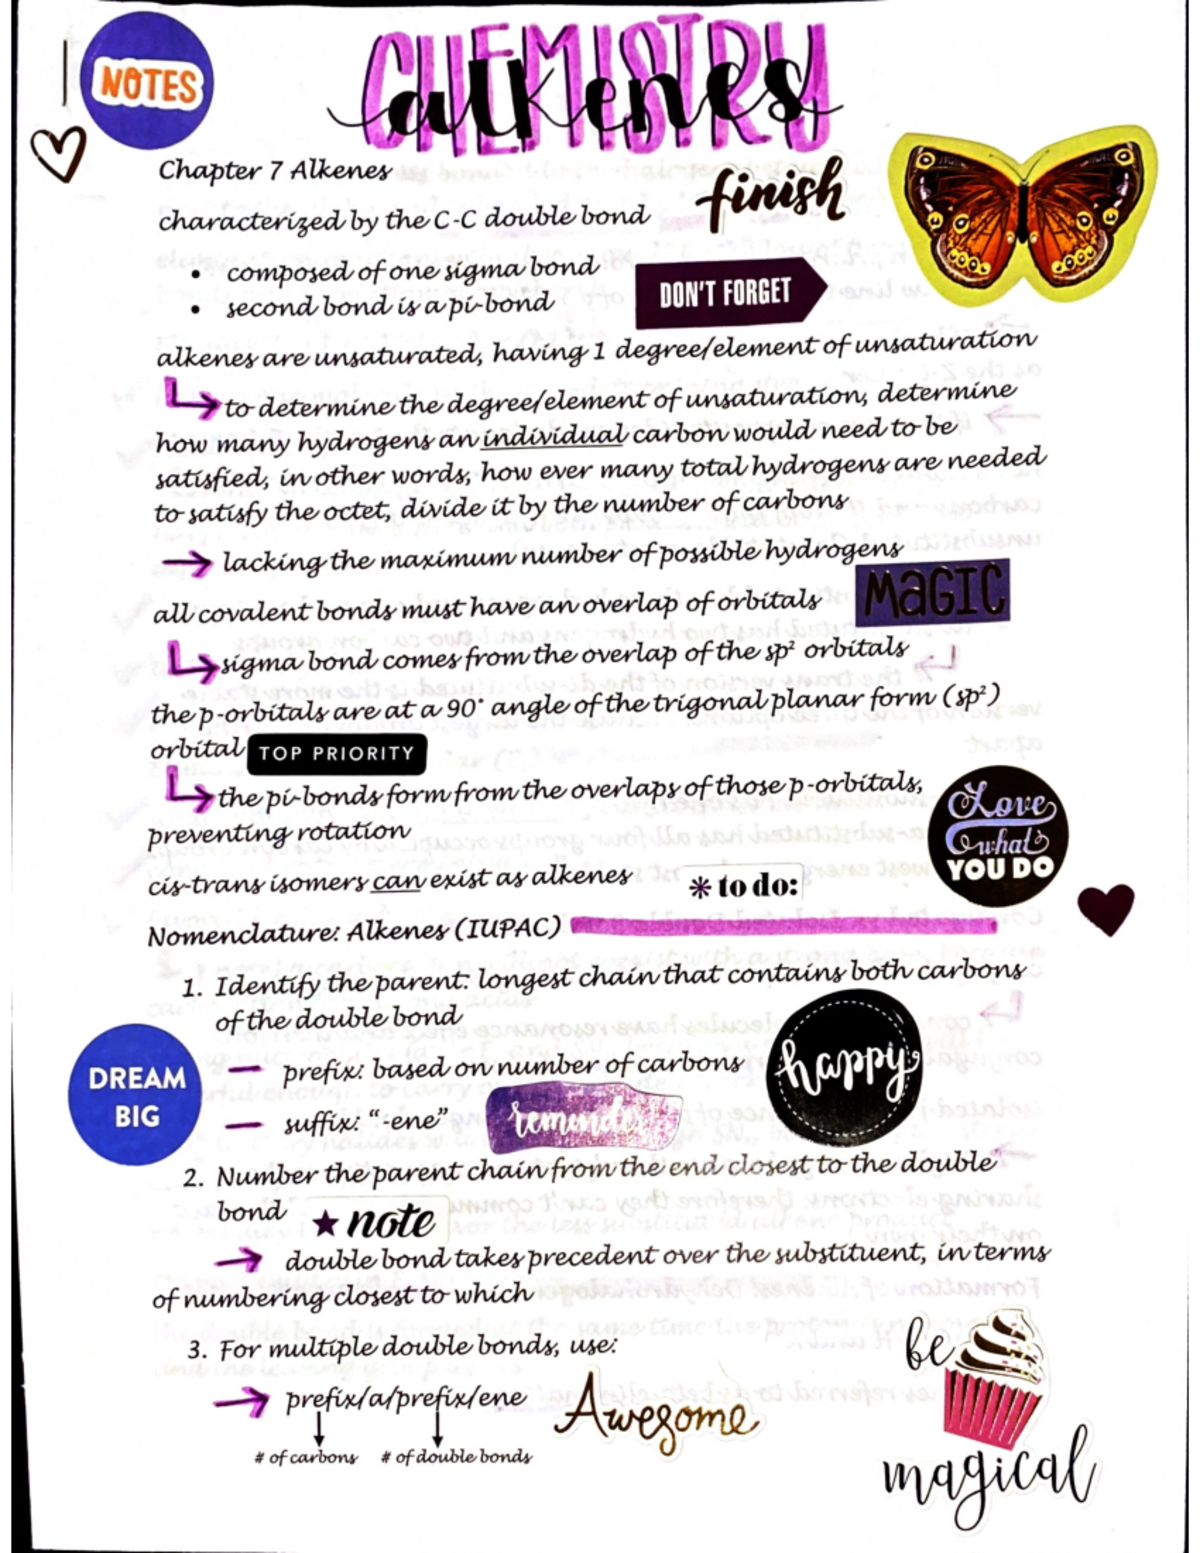 NOTES
CHEMISTRY
alkenes
Chapter 7 Alkenes
finish
characterized by the C-C double bond
• composed of one sigma bond
• second bond is a pi-bond
DON'T FORGET
alkenes are unsaturated, having 1 degree/element of unsaturation
to determine the degree/element of unsaturation, determine
how many hydrogens an individual carbon would need to be
satisfied, in other words, how ever many total hydrogens are needed
to satisfy the octet, divide it by the number of carbons
lacking the maximum number of possible hydrogens
all covalent bonds must have an overlap of orbitals
MAGIC
sigma bond comes from the overlap of the sp² orbitals
the p-orbitals are at a 90° angle of the trigonal planar form (sp²)
orbital
TOP PRIORITY
the pi-bonds form from the overlaps of those p-orbitals,
preventing rotation
Love
what
YOU DO
cis-trans isomers can exist as alkenes
* to do:
Nomenclature: Alkenes (IUPAC)
1. Identify the parent: longest chain that contains both carbons
of the double bond
DREAM
BIG
— prefix: based on number of carbons
happy
— suffix: "-ene"
reminder
2. Number the parent chain from the end closest to the double
bond
★ note
double bond takes precedent over the substituent, in terms
of numbering closest to which
3. For multiple double bonds, use:
prefix/a/prefix/ene
# of carbons # of double bonds
Awesome
be
magical